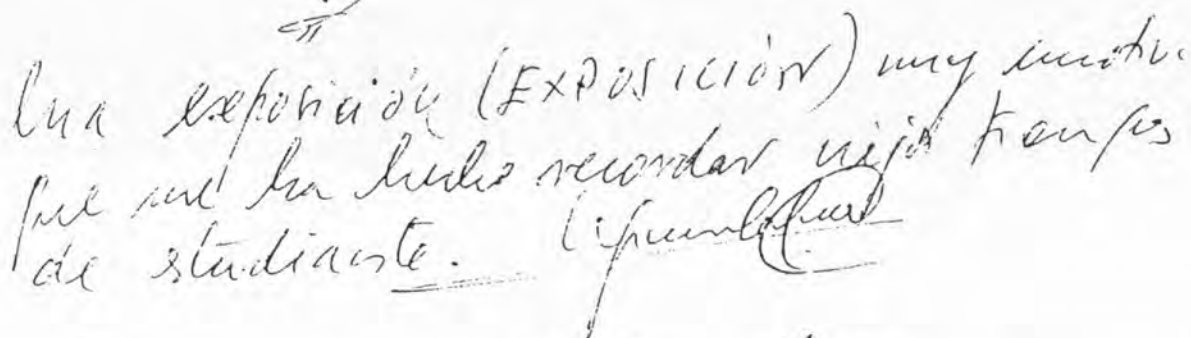 Una exposición (EXPOSICIÓN) muy emotiva
que me ha hecho recordar viejos tiempos
de estudiante.